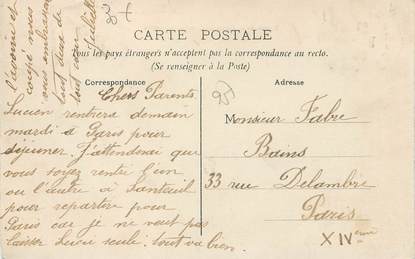 CARTE POSTALE
Tous les pays étrangers n'acceptent pas la correspondance au recto.
(Se renseigner à la Poste)
Correspondance
Adresse
Chers Parents
Lucien rentrera demain
mardi à Paris pour
déjeuner. J'attenderai que
vous soyez rentré l'un
ou l'autre à Santeuil
pour repartir pour
Paris car je ne veut pas
laisser Lucie seule. tout va bien.
l'avoine et
congé nous
vous embrassons
tout deux de
tout cœur
Juliette
Monsieur Fabre
Bains
33 rue Delambre
Paris
XIVème